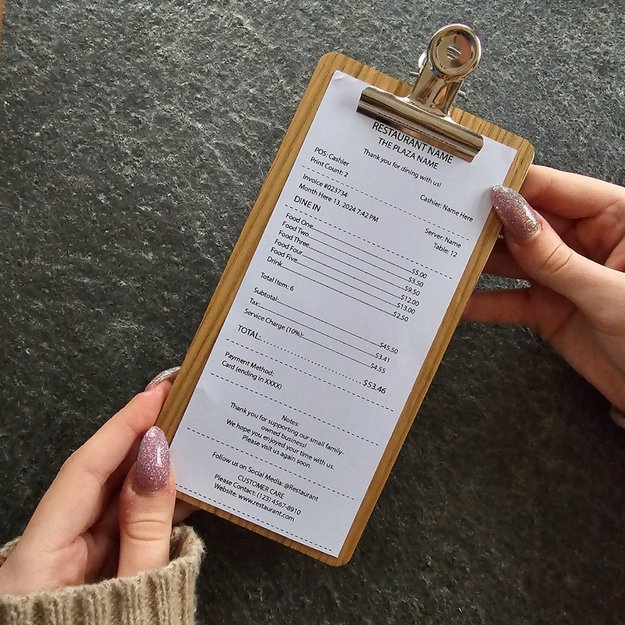 RESTAURANT NAME
THE PLAZA NAME
Thank you for dining with us!
POS: Cashier
Print Count: 2
Cashier: Name Here
Invoice #023734
Month Here 13, 2024 7:42 PM
Server: Name
Table: 12
DINE IN
Food One $5.00
Food Two $3.50
Food Three $9.50
Food Four $12.00
Food Five $13.00
Drink $2.50
Total Item: 6
Subtotal: $45.50
Tax: $3.41
Service Charge (10%): $4.55
TOTAL: $53.46
Payment Method:
Card (ending in XXXX)
Notes:
Thank you for supporting our small family-
owned business!
We hope you enjoyed your time with us.
Please visit us again soon
Follow us on Social Media: @Restaurant
CUSTOMER CARE
Please Contact: (123) 4567-8910
Website: www.restaurant.com